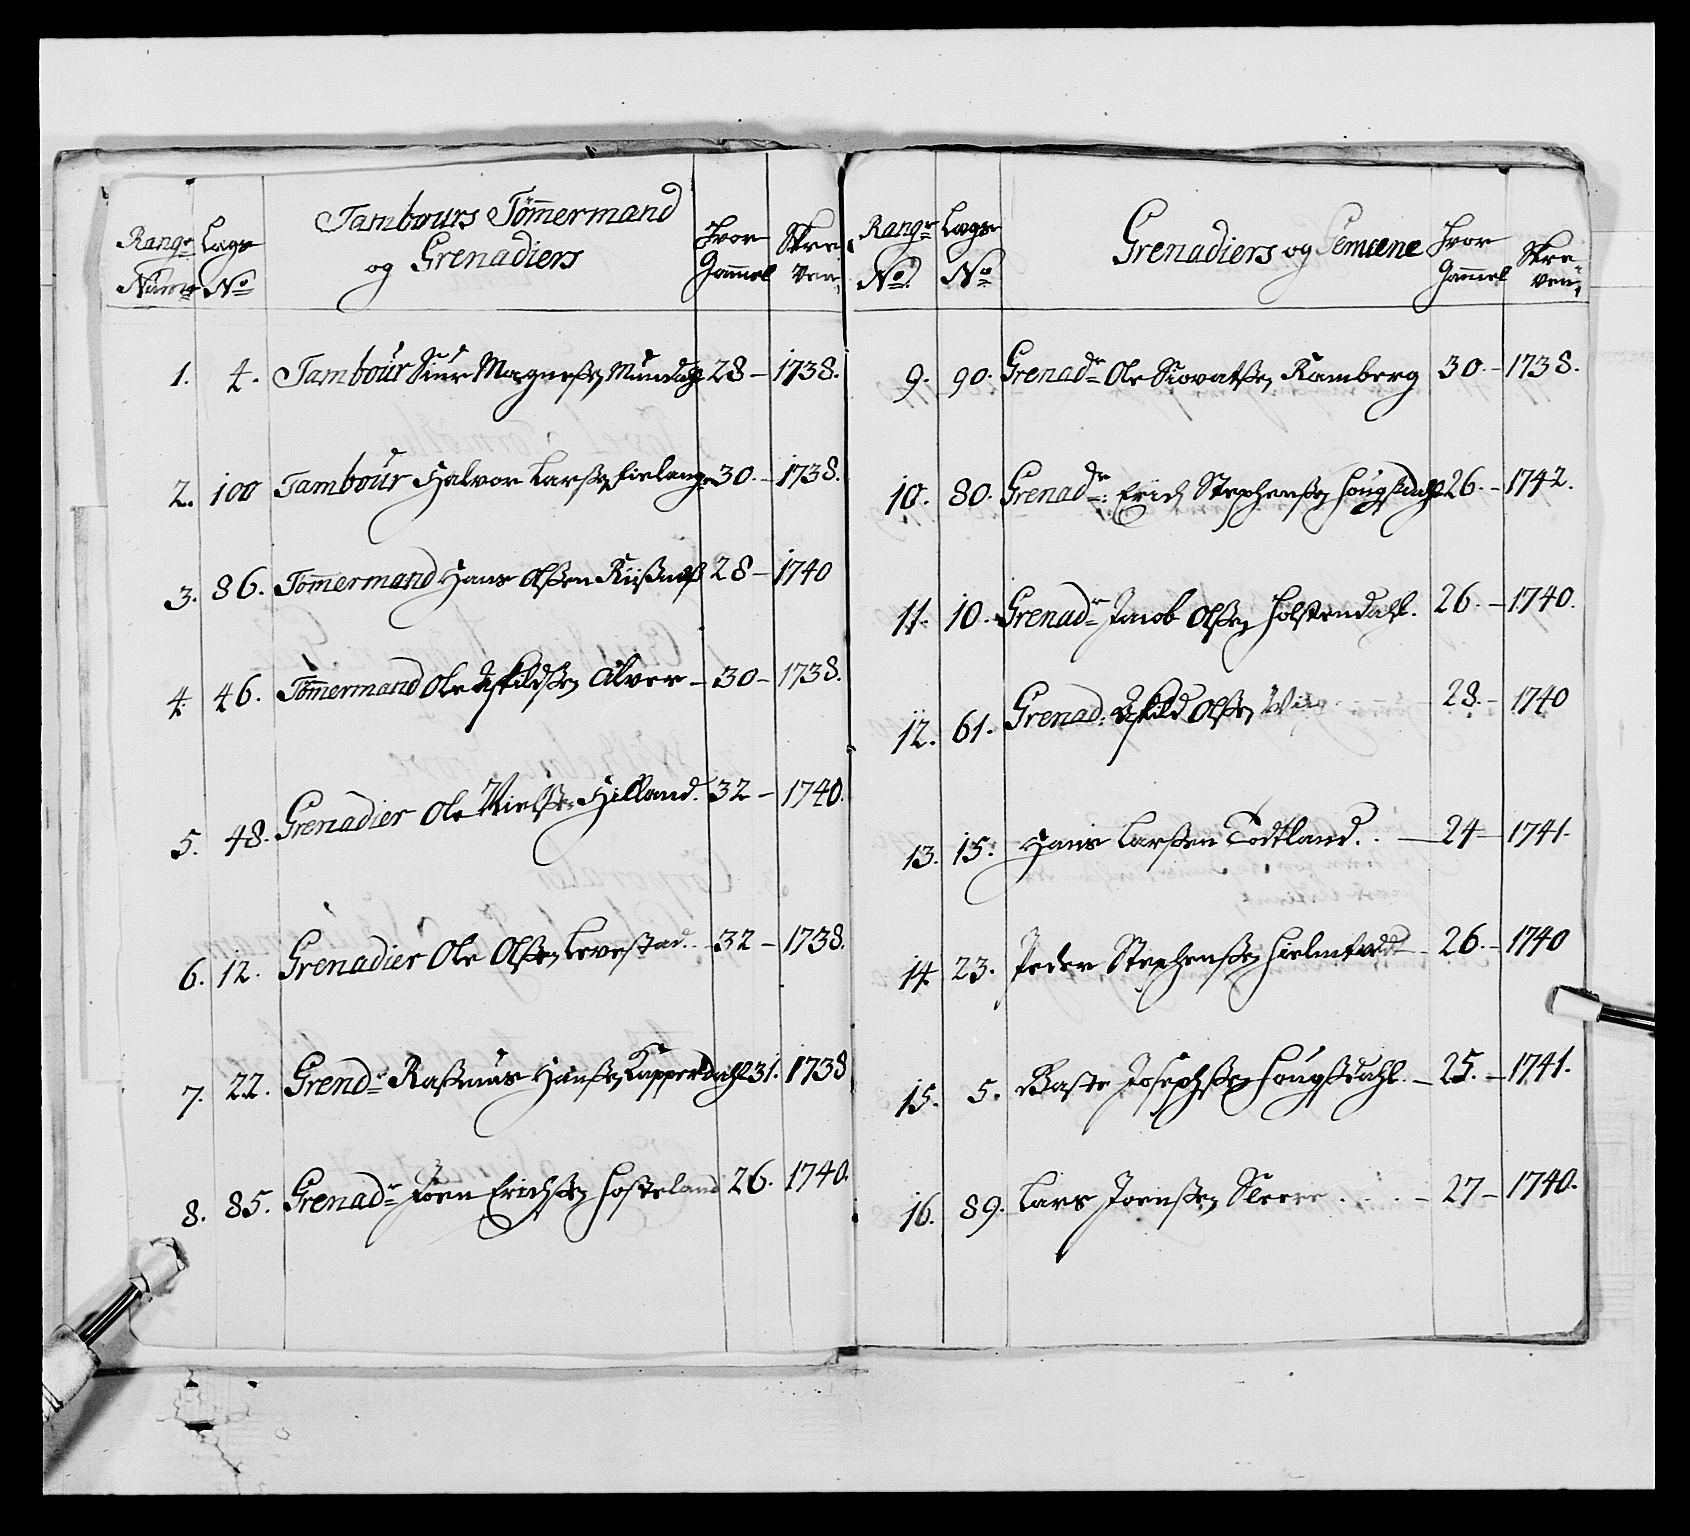 Rangs Numr | Lags No | Tambours Tömmermand og Grenadiers | Hvor Gammel | Skreven
1. 4. Tambour Siur Magneßen Mundahl 28 – 1738.
2. 100 Tambour Halvor Larßen 30. – 1738.
3. 86. Tömmermand Hans Olßen Riisnæß 28 – 1740
4. 46. Tömmermand Ole Eskildßen Alver – 30 – 1738.
5. 48. Grenadier Ole Nielßen Hilland. 32 – 1740.
6. 12. Grenadier Ole Olßen Levestad. – 32 – 1738.
7. 22. Grendr Raßmus Hanßen Kapperdahl 31. 1738
8. 85. Grenadr Joen Erichßen Hosteland 26. 1740.
Rangs No. | Lags No | Grenadiers og Gemeene | Hvor Gammel | Skreven
9. 90. Grenadr Ole Siovatßen Ramberg 30. – 1738.
10. 80. Grenadr: Erich Stephenßen Hougsdahl 26. – 1742.
11. 10. Grenadr Jacob Olßen Holstendahl. 26. – 1740.
12. 61. Grenad: Eskild Olßen Wiig 28. – 1740
13. 15. Hans Larßen Todtland. – 24 – 1741.
14. 23. Peder Stephenßen Hielmtvedt – 26. – 1740
15. 5. Baste Josephßen Hougßdahl. – 25. – 1741.
16. 89. Lars Joenßen Sleere – 27 – 1740.